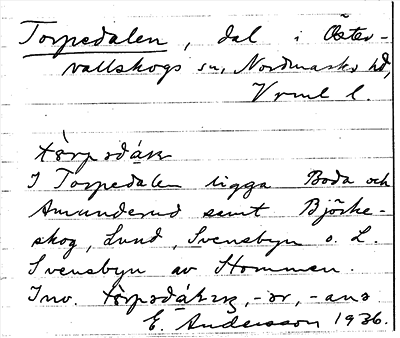 Torpedalen, dal i Öster-
vallskogs sn, Nordmarks hd,
Vrml l.
I Torpedalen ligga Boda och
Amunderud samt Björke-
skog, Lund, Svensbyn o. L.
Svensbyn av Hommen.
Inv. -ar, -ana
E. Andersson 1936.